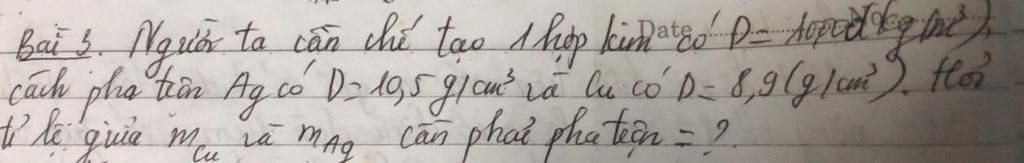 Bài 3. Người ta cần chế tạo 1 hợp kim có D = 10000 kg/m³),
cách pha trộn Ag có D = 10,5 g/cm³ và Cu có D = 8,9 (g/cm³). Hỏi
tỉ lệ giữa m_Cu và m_Ag cần phải pha trộn = ?